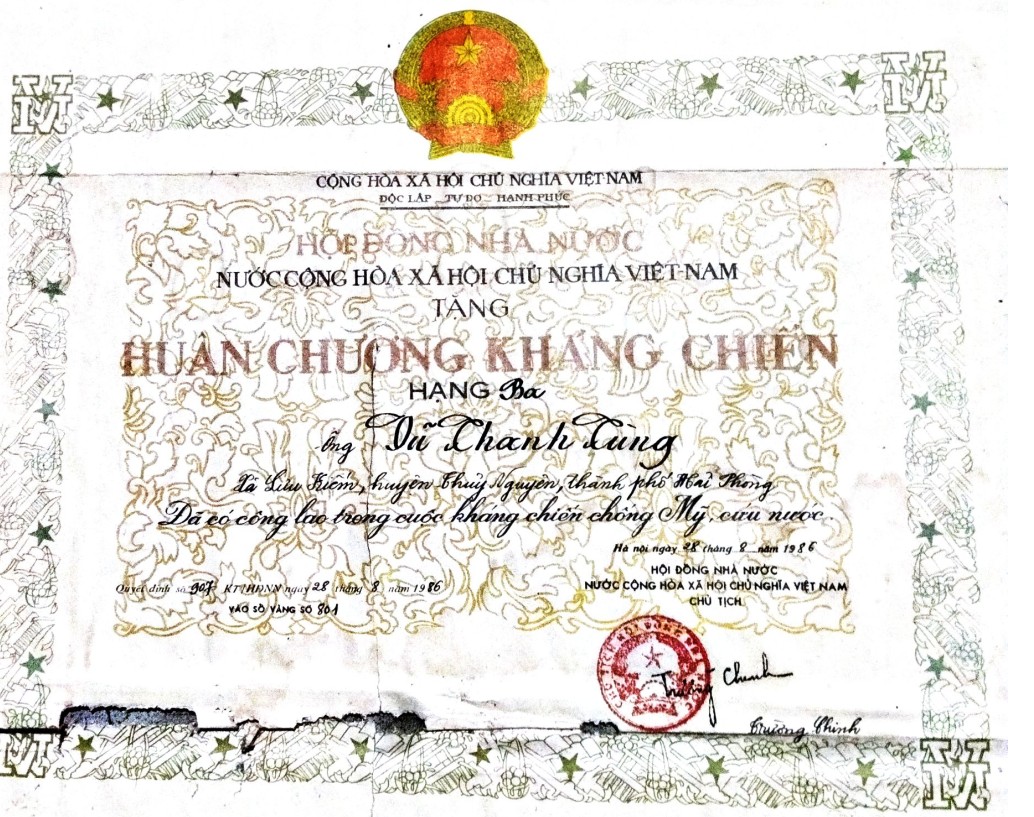 CỘNG HÒA XÃ HỘI CHỦ NGHĨA VIỆT-NAM
ĐỘC LẬP _ TỰ DO _ HẠNH PHÚC
HỘI ĐỒNG NHÀ NƯỚC
NƯỚC CỘNG HÒA XÃ HỘI CHỦ NGHĨA VIỆT-NAM
TẶNG
HUÂN CHƯƠNG KHÁNG CHIẾN
HẠNG Ba
Ông Vũ Thanh Tùng
Xã Lưu Kiếm, huyện Thủy Nguyên, thành phố Hải Phòng
Đã có công lao trong cuộc kháng chiến chống Mỹ, cứu nước.
Hà nội ngày 28 tháng 8 năm 1986
HỘI ĐỒNG NHÀ NƯỚC
NƯỚC CỘNG HÒA XÃ HỘI CHỦ NGHĨA VIỆT NAM
CHỦ TỊCH
Quyết định số 907 KT/HĐNN ngày 28 tháng 8 năm 1986
VÀO SỔ VÀNG SỐ 801
Trường Chinh
Trường Chinh